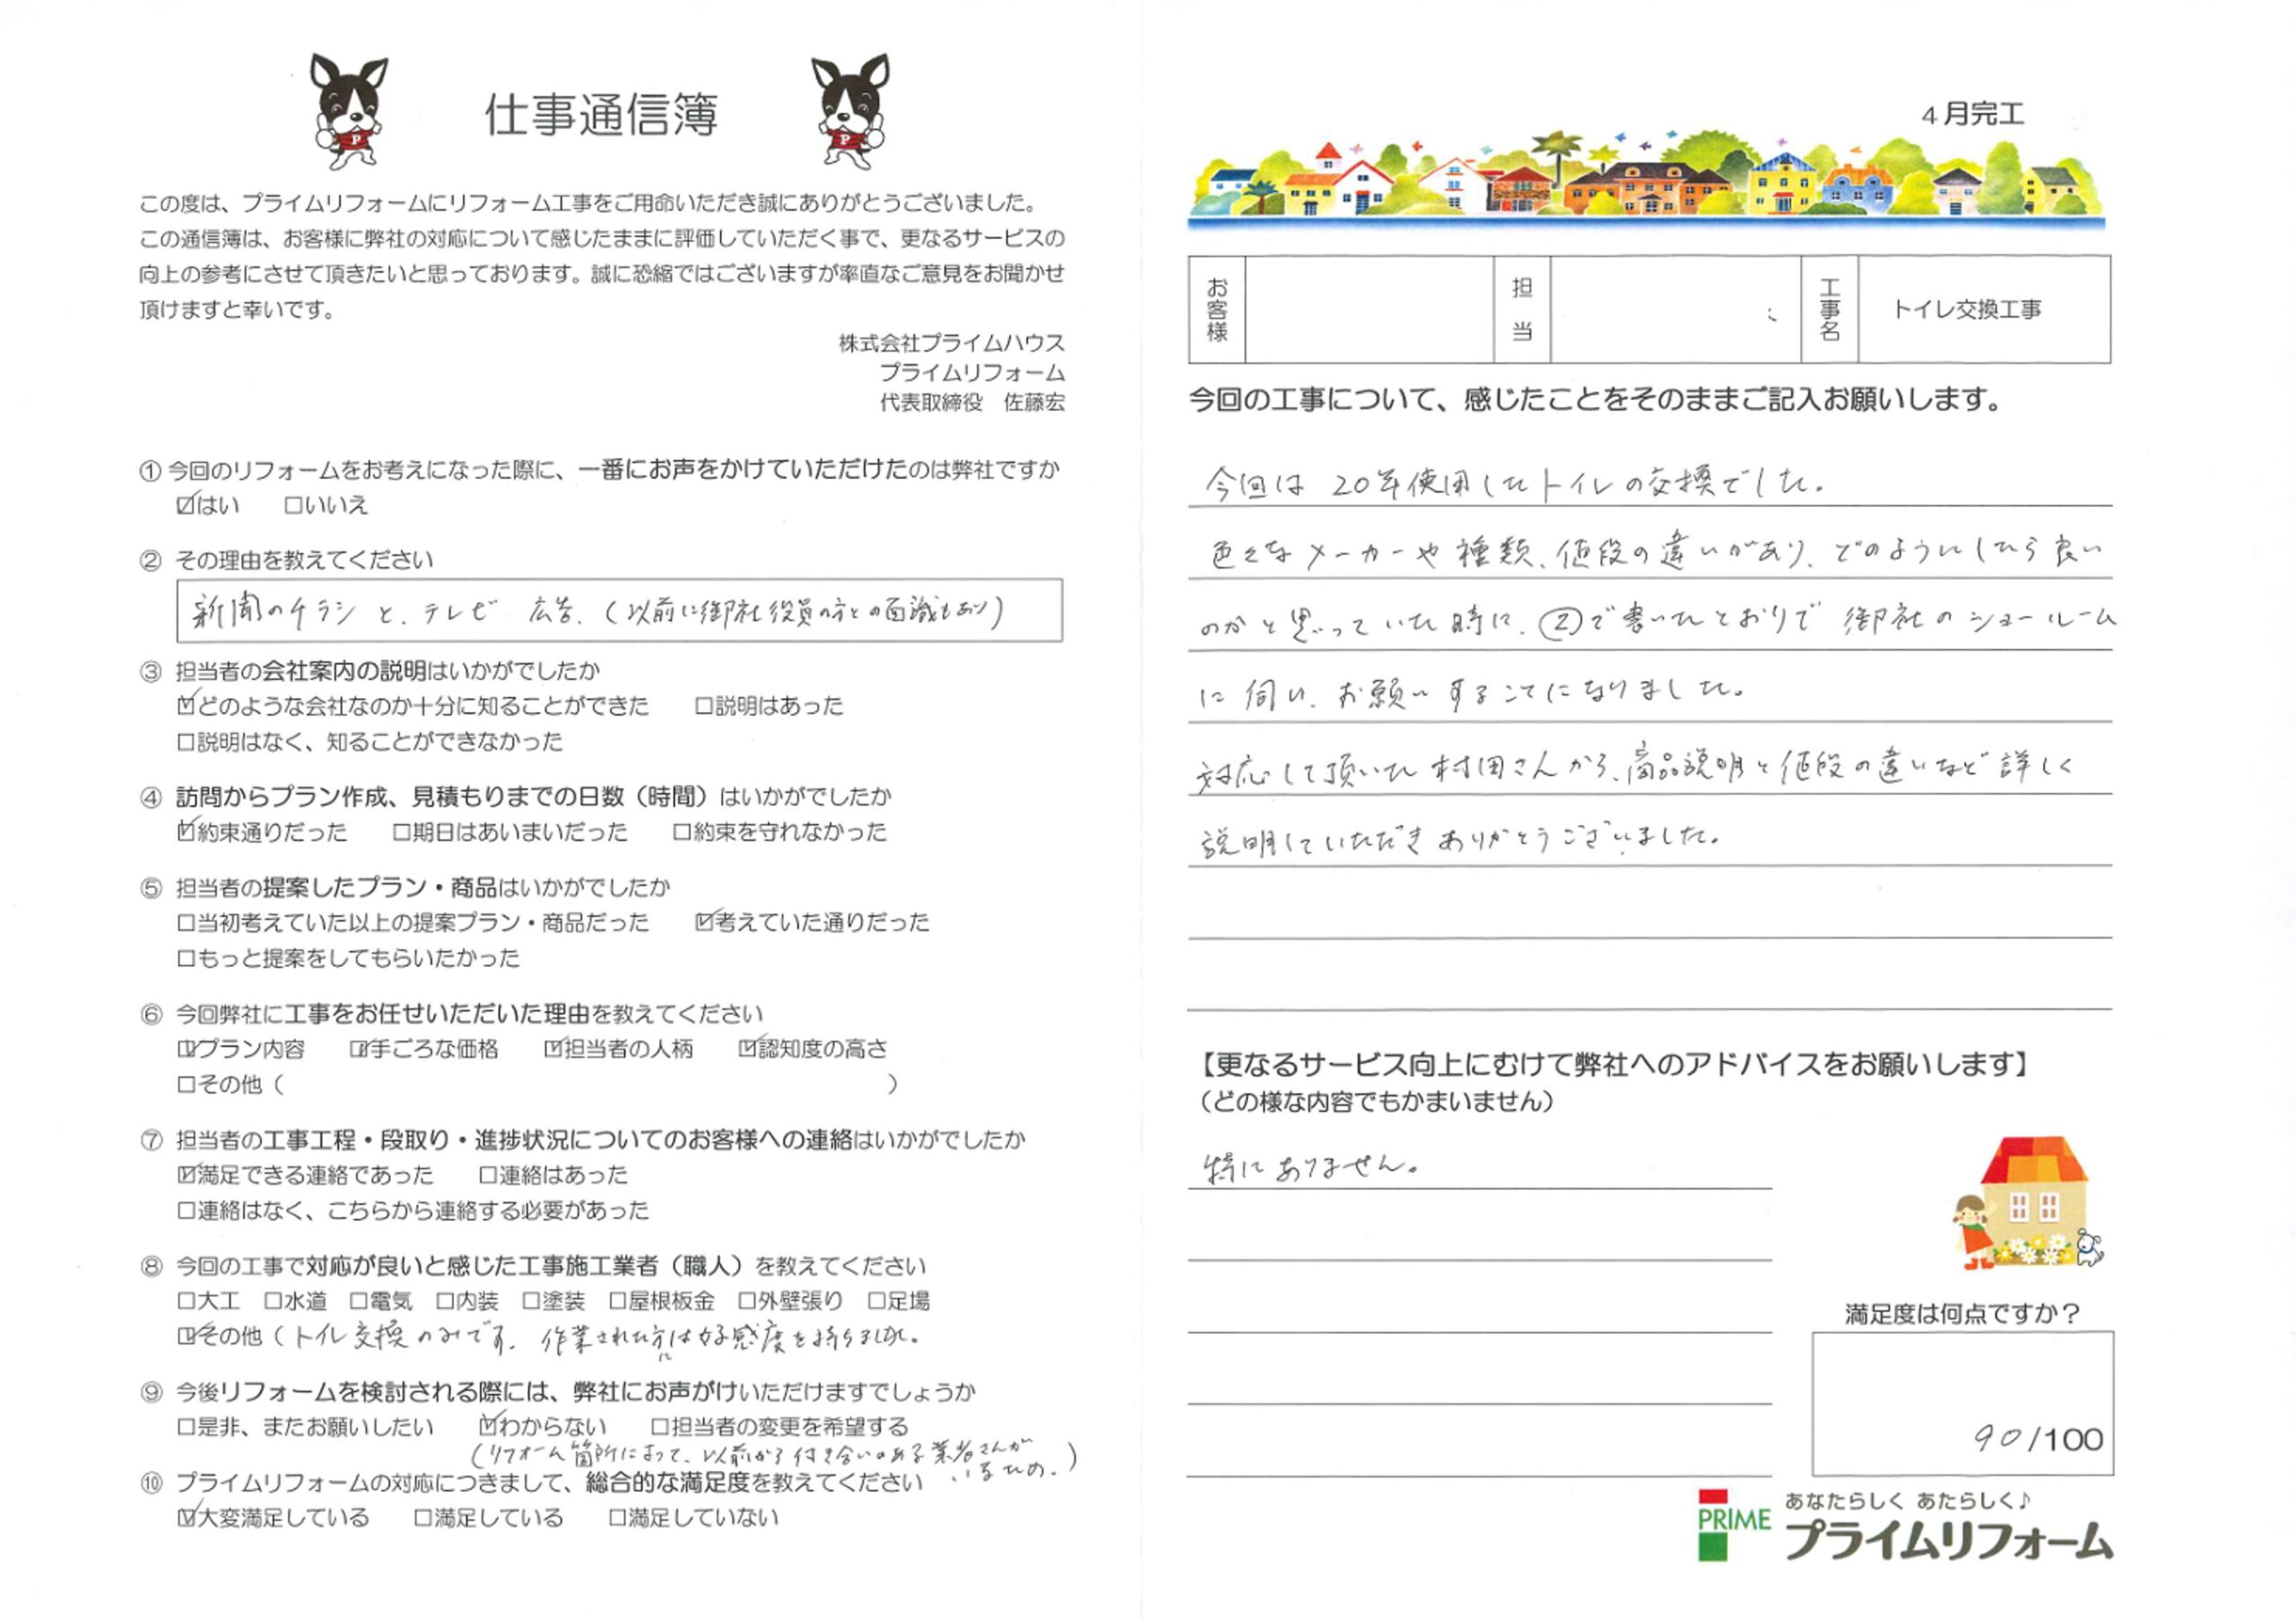 仕事通信簿
この度は、プライムリフォームにリフォーム工事をご用命いただき誠にありがとうございました。
この通信簿は、お客様に弊社の対応について感じたままに評価していただく事で、更なるサービスの
向上の参考にさせて頂きたいと思っております。誠に恐縮ではございますが率直なご意見をお聞かせ
頂けますと幸いです。
株式会社プライムハウス
プライムリフォーム
代表取締役 佐藤宏
① 今回のリフォームをお考えになった際に、一番にお声をかけていただけたのは弊社ですか
☑はい □いいえ
② その理由を教えてください
新聞のチラシと、テレビ広告、(以前に御社役員の方との面識もあり)
③ 担当者の会社案内の説明はいかがでしたか
☑どのような会社なのか十分に知ることができた □説明はあった
□説明はなく、知ることができなかった
④ 訪問からプラン作成、見積もりまでの日数（時間）はいかがでしたか
☑約束通りだった □期日はあいまいだった □約束を守れなかった
⑤ 担当者の提案したプラン・商品はいかがでしたか
□当初考えていた以上の提案プラン・商品だった ☑考えていた通りだった
□もっと提案をしてもらいたかった
⑥ 今回弊社に工事をお任せいただいた理由を教えてください
☑プラン内容 ☑手ごろな価格 ☑担当者の人柄 ☑認知度の高さ
□その他（ ）
⑦ 担当者の工事工程・段取り・進捗状況についてのお客様への連絡はいかがでしたか
☑満足できる連絡であった □連絡はあった
□連絡はなく、こちらから連絡する必要があった
⑧ 今回の工事で対応が良いと感じた工事施工業者（職人）を教えてください
□大工 □水道 □電気 □内装 □塗装 □屋根板金 □外壁張り □足場
☑その他（トイレ交換のみです。作業された方には好感度を持ちました。
⑨ 今後リフォームを検討される際には、弊社にお声がけいただけますでしょうか
□是非、またお願いしたい ☑わからない □担当者の変更を希望する
(リフォーム箇所によって、以前から付き合いのある業者さんが
いるため。)
⑩ プライムリフォームの対応につきまして、総合的な満足度を教えてください
☑大変満足している □満足している □満足していない
4月完工
お客様 担当 工事名 トイレ交換工事
今回の工事について、感じたことをそのままご記入お願いします。
今回は20年使用したトイレの交換でした。
色々なメーカーや種類、値段の違いがあり、どのようにしたら良い
のかと思っていた時に、②で書いたとおりで御社のショールーム
に伺い、お願いすることになりました。
対応して頂いた村田さんから、商品説明と値段の違いなど詳しく
説明していただきありがとうございました。
【更なるサービス向上にむけて弊社へのアドバイスをお願いします】
（どの様な内容でもかまいません）
特にありません。
満足度は何点ですか？
90/100
あなたらしく あたらしく♪
PRIME プライムリフォーム